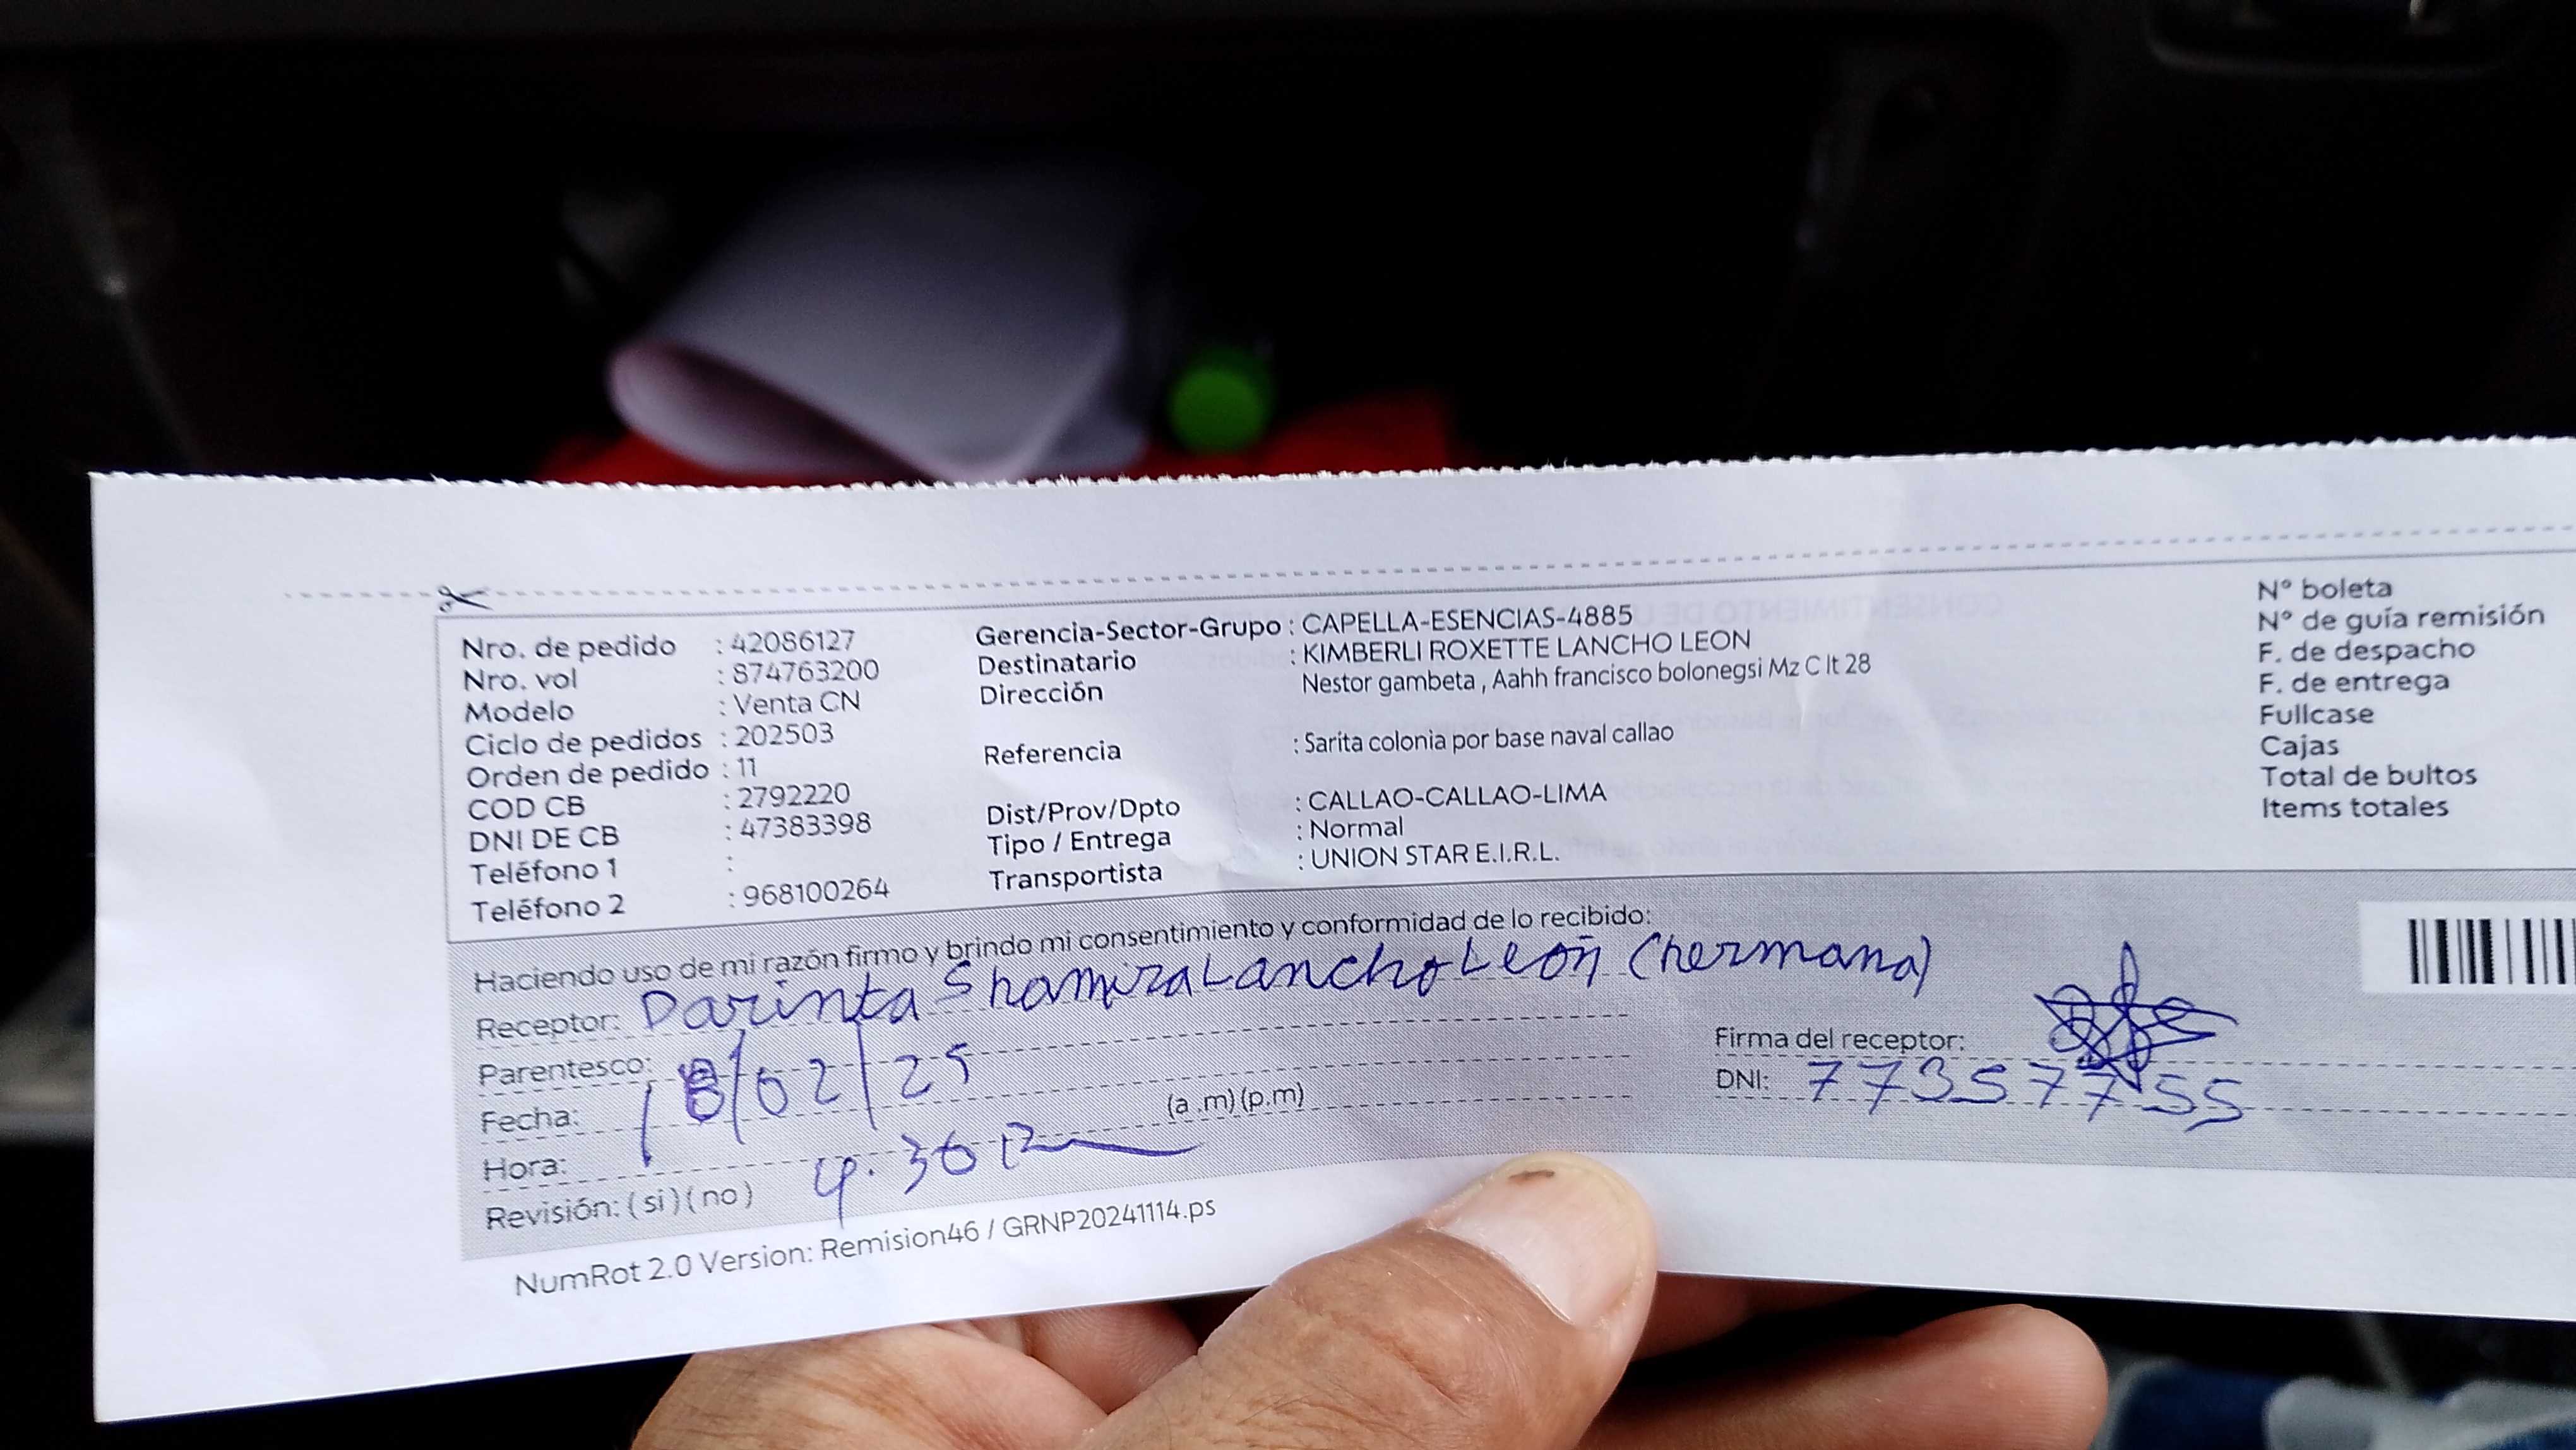 Nro. de pedido : 42086127
Nro. vol : 874763200
Modelo : Venta CN
Ciclo de pedidos : 202503
Orden de pedido : 11
COD CB : 2792220
DNI DE CB : 47383398
Teléfono 1 :
Teléfono 2 : 968100264
Gerencia-Sector-Grupo : CAPELLA-ESENCIAS-4885
Destinatario : KIMBERLI ROXETTE LANCHO LEON
Dirección Nestor gambeta , Aahh francisco bolonegsi Mz C lt 28
Referencia : Sarita colonia por base naval callao
Dist/Prov/Dpto : CALLAO-CALLAO-LIMA
Tipo / Entrega : Normal
Transportista : UNION STAR E.I.R.L.
N° boleta
N° de guía remisión
F. de despacho
F. de entrega
Fullcase
Cajas
Total de bultos
Items totales
Haciendo uso de mi razón firmo y brindo mi consentimiento y conformidad de lo recibido:
Receptor: Shamira Lancho León (hermana)
Parentesco:
Fecha: 18/02/25
Hora: 4.30 (a .m) (p.m)
Revisión: ( si ) ( no )
Firma del receptor:
DNI: 77357755
NumRot 2.0 Version: Remision46 / GRNP20241114.ps